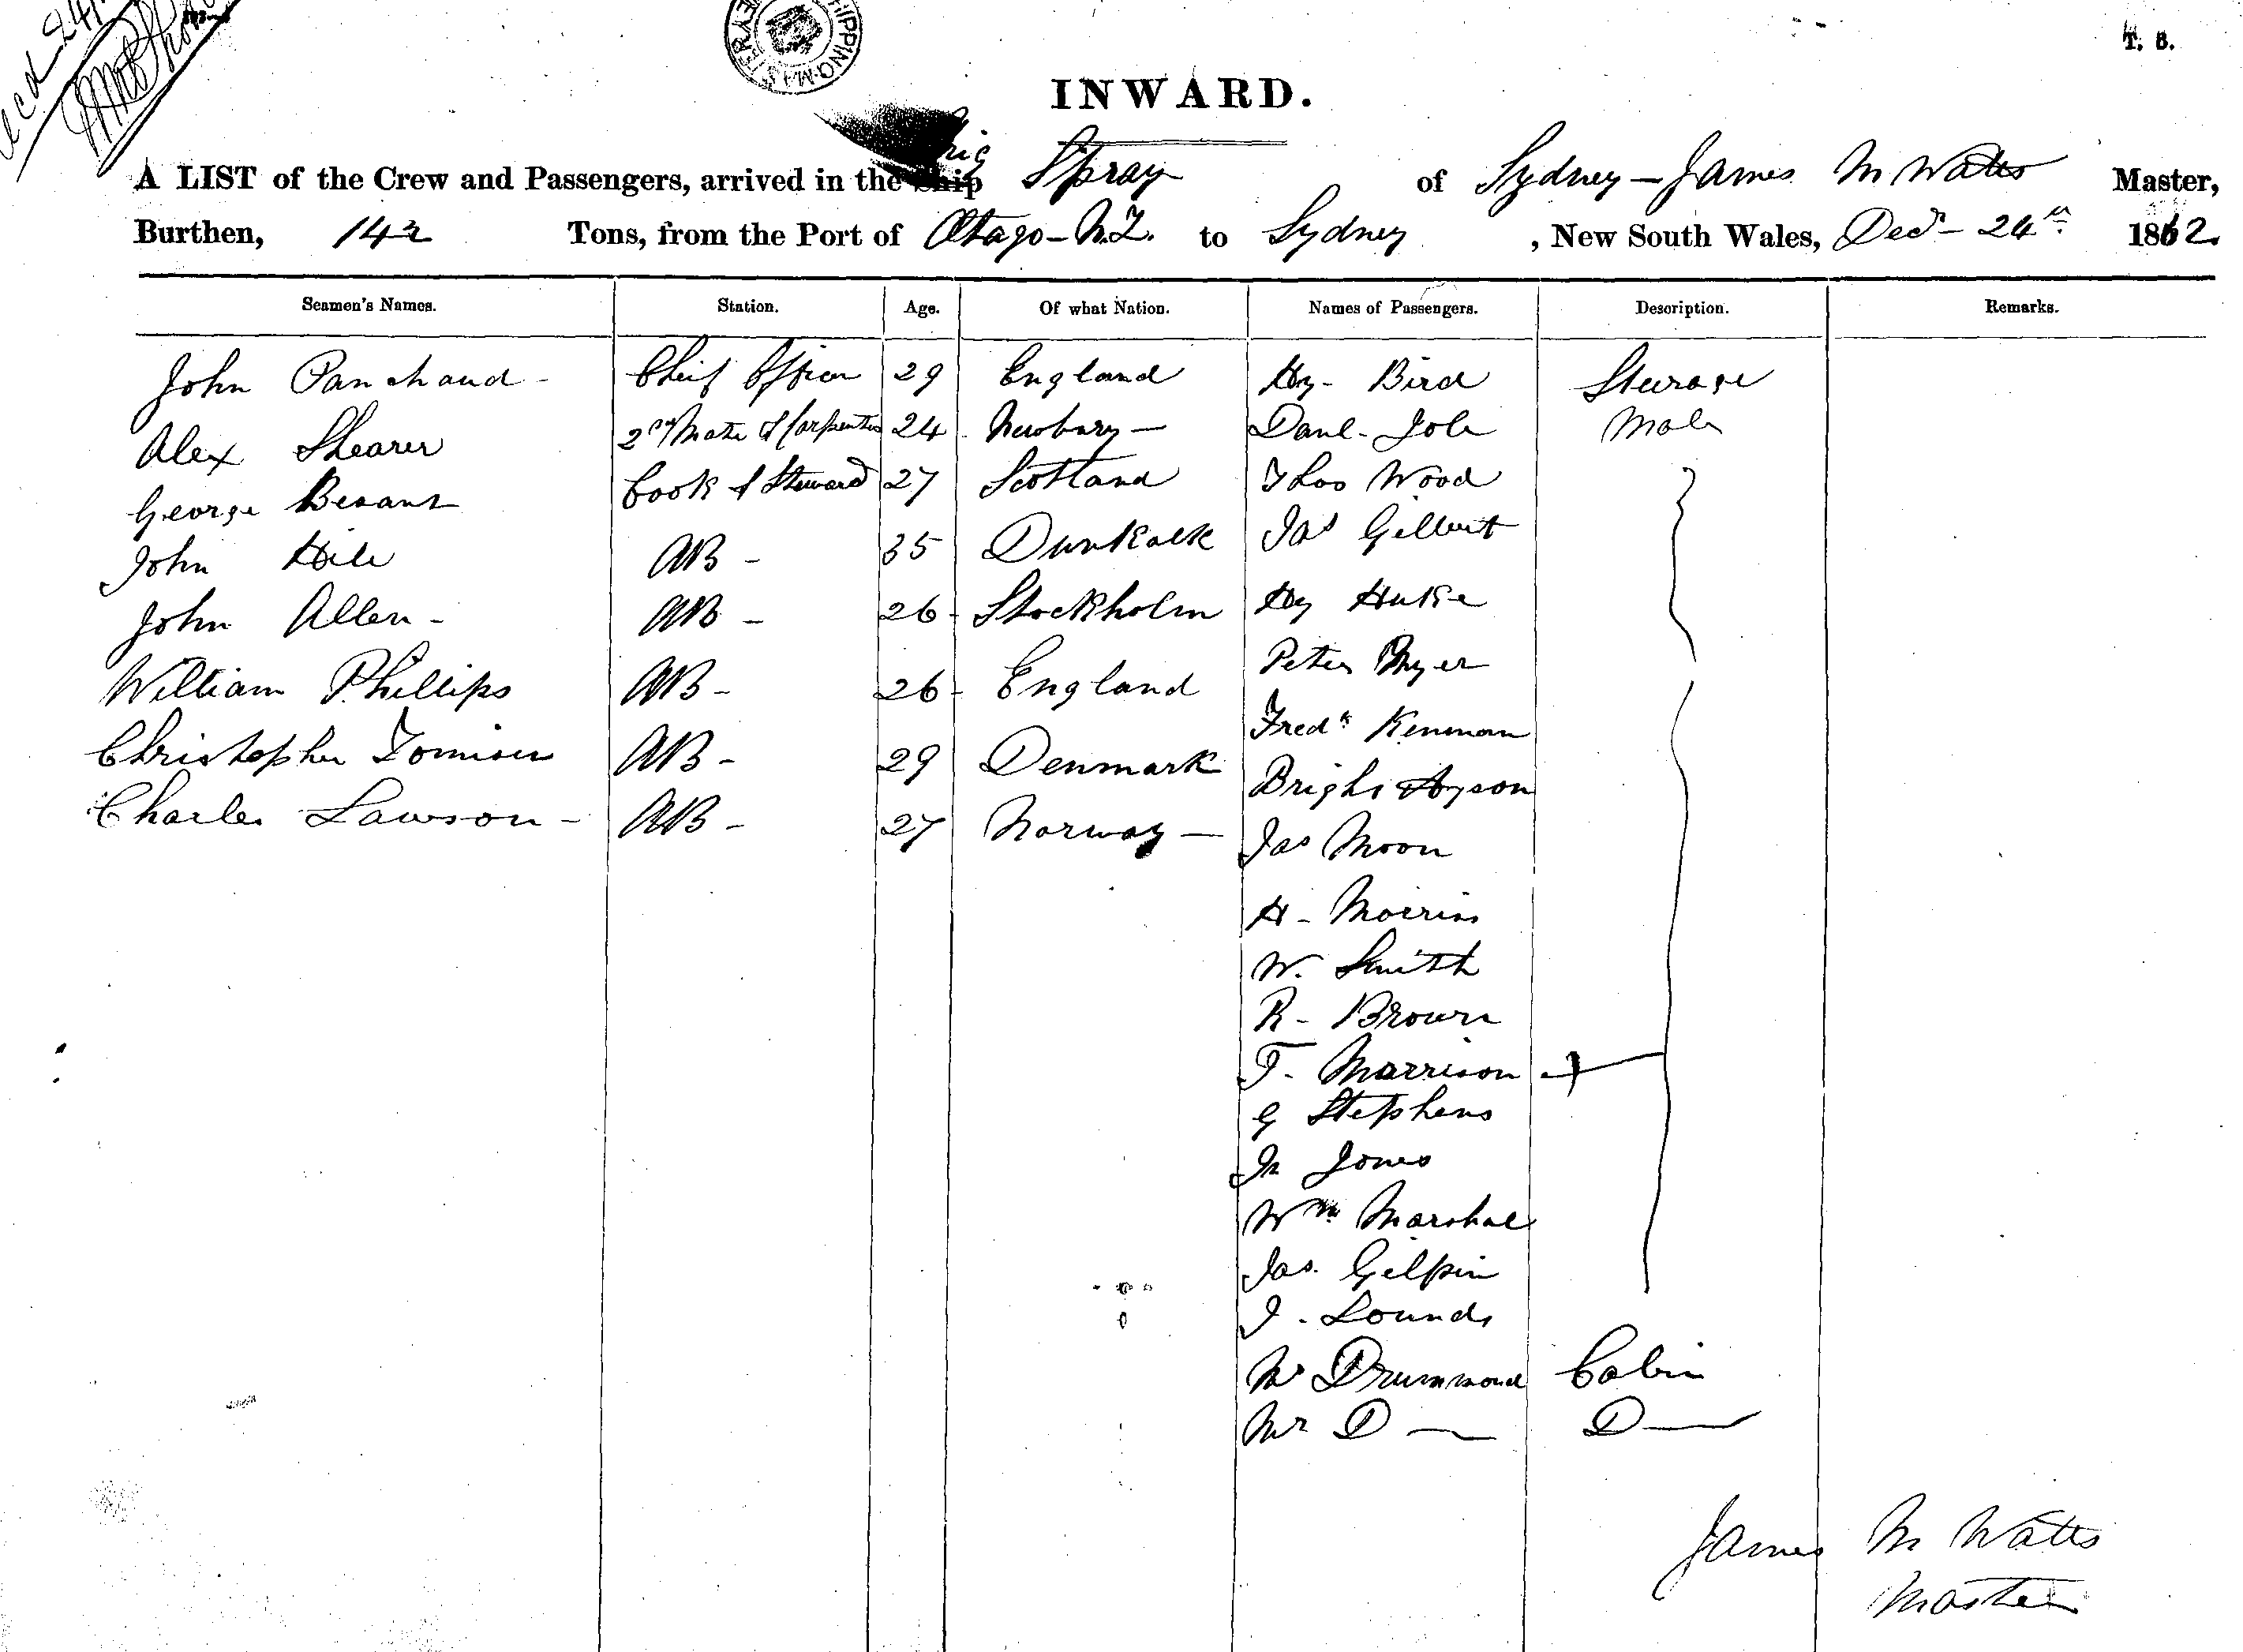 T. 6.
SHIPPING MASTER
INWARD.
A LIST of the Crew and Passengers, arrived in the Ship Brig Spray of Sydney - James M Watts Master,
Burthen, 142 Tons, from the Port of Otago - N.Z. to Sydney, New South Wales, Decr 24th 1862.
Seamen's Names. Station. Age. Of what Nation. Names of Passengers. Description. Remarks.
John Panchaud - Chief Officer 29 England Hy - Bird Steerage
Alex Shearer 2nd Mate & Carpenter 24 Newbury - Danl - Jole Male
George Besant Cook & Steward 27 Scotland Thos Wood
John Hile AB - 35 Dunkalk Jas Gilbert
John Allen - AB - 26 - Stockholm Hy Huke
William Phillips AB - 26 - England Peter Myer
Christopher AB - 29 Denmark Fredk Kenman
Charles Lawson - AB - 27 Norway - Bright Hyson
Jas Moon
H - Morriss
W. Smith
R - Brown
T. Marrison
G Stephens
Jn Jones
Wm Marshal
Jas. Gilpin
J. Lounds
Mr Drummond Cabin
Mr D — D —
James M Watts
Master